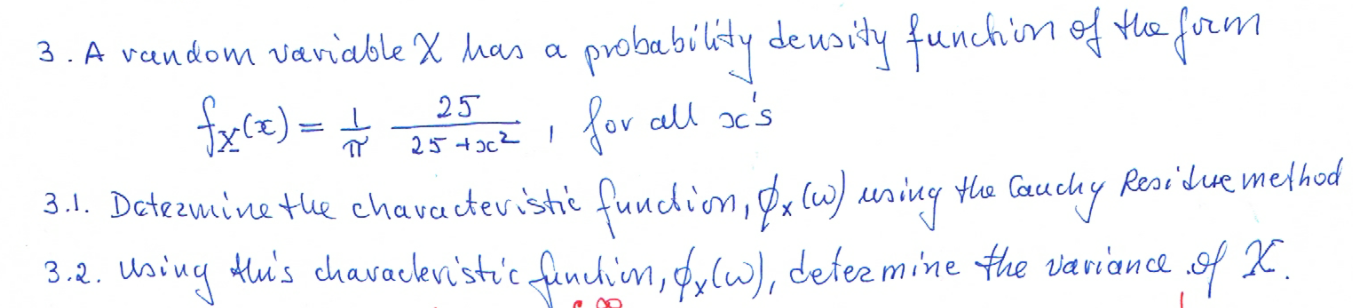 3. A random variable X has a probability density function of the form
fX(x) = 1/π 25/(25+x²), for all x's
3.1. Determine the characteristic function, ϕx(ω) using the Cauchy Residue method
3.2. Using this characteristic function, ϕx(ω), determine the variance of X.